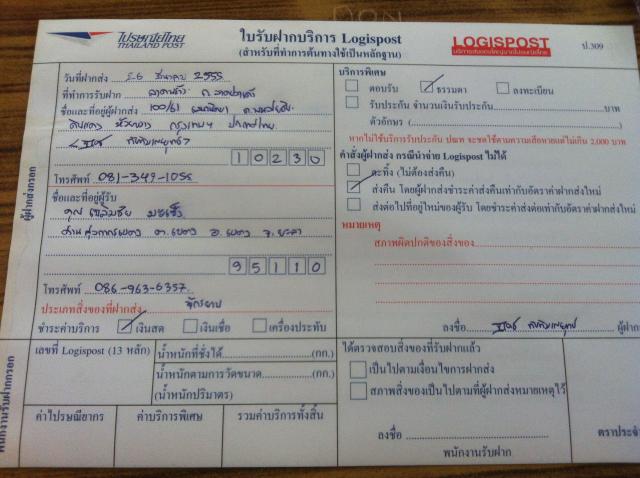 ไปรษณีย์ไทย
THAILAND POST
ใบรับฝากบริการ Logispost
(สำหรับที่ทำการต้นทางใช้เป็นหลักฐาน)
LOGISPOST
ป.309
วันที่ฝากส่ง 26 มีนาคม 2555
ที่ทำการรับฝาก ลาดพร้าว
ชื่อและที่อยู่ผู้ฝากส่ง 100/61
กรุงเทพฯ ประเทศไทย
10230
โทรศัพท์ 081-349-1055
ชื่อและที่อยู่ผู้รับ
คุณ เฉลิมชัย
ด่านศุลกากรเบตง ต.เบตง อ.เบตง จ.ยะลา
95110
โทรศัพท์ 086-963-6357
ประเภทสิ่งของที่ฝากส่ง จักรยาน
ชำระค่าบริการ เงินสด เงินเชื่อ เครื่องประทับ
ผู้ฝากส่งกรอก
บริการพิเศษ
ตอบรับ ธรรมดา ลงทะเบียน
รับประกัน จำนวนเงินรับประกัน บาท
ตัวอักษร ( )
หากไม่ใช้บริการรับประกัน ปณท จะชดใช้ตามความเสียหายแต่ไม่เกิน 2,000 บาท
คำสั่งผู้ฝากส่ง กรณีนำจ่าย Logispost ไม่ได้
ละทิ้ง (ไม่ต้องส่งคืน)
ส่งคืน โดยผู้ฝากส่งชำระค่าส่งคืนเท่ากับอัตราค่าฝากส่งใหม่
ส่งต่อไปที่อยู่ใหม่ของผู้รับ โดยชำระค่าส่งต่อเท่ากับอัตราค่าฝากส่งใหม่
หมายเหตุ
สภาพผิดปกติของสิ่งของ
ลงชื่อ ผู้ฝาก
เลขที่ Logispost (13 หลัก)
น้ำหนักที่ชั่งได้ (กก.)
น้ำหนักตามการวัดขนาด (กก.)
(น้ำหนักปริมาตร)
ค่าไปรษณียากร
ค่าบริการพิเศษ
รวมค่าบริการทั้งสิ้น
พนักงานรับฝากกรอก
ได้ตรวจสอบสิ่งของที่รับฝากแล้ว
เป็นไปตามเงื่อนไขการฝากส่ง
สภาพสิ่งของเป็นไปตามที่ผู้ฝากส่งหมายเหตุไว้
ลงชื่อ
พนักงานรับฝาก
ตราประจำ